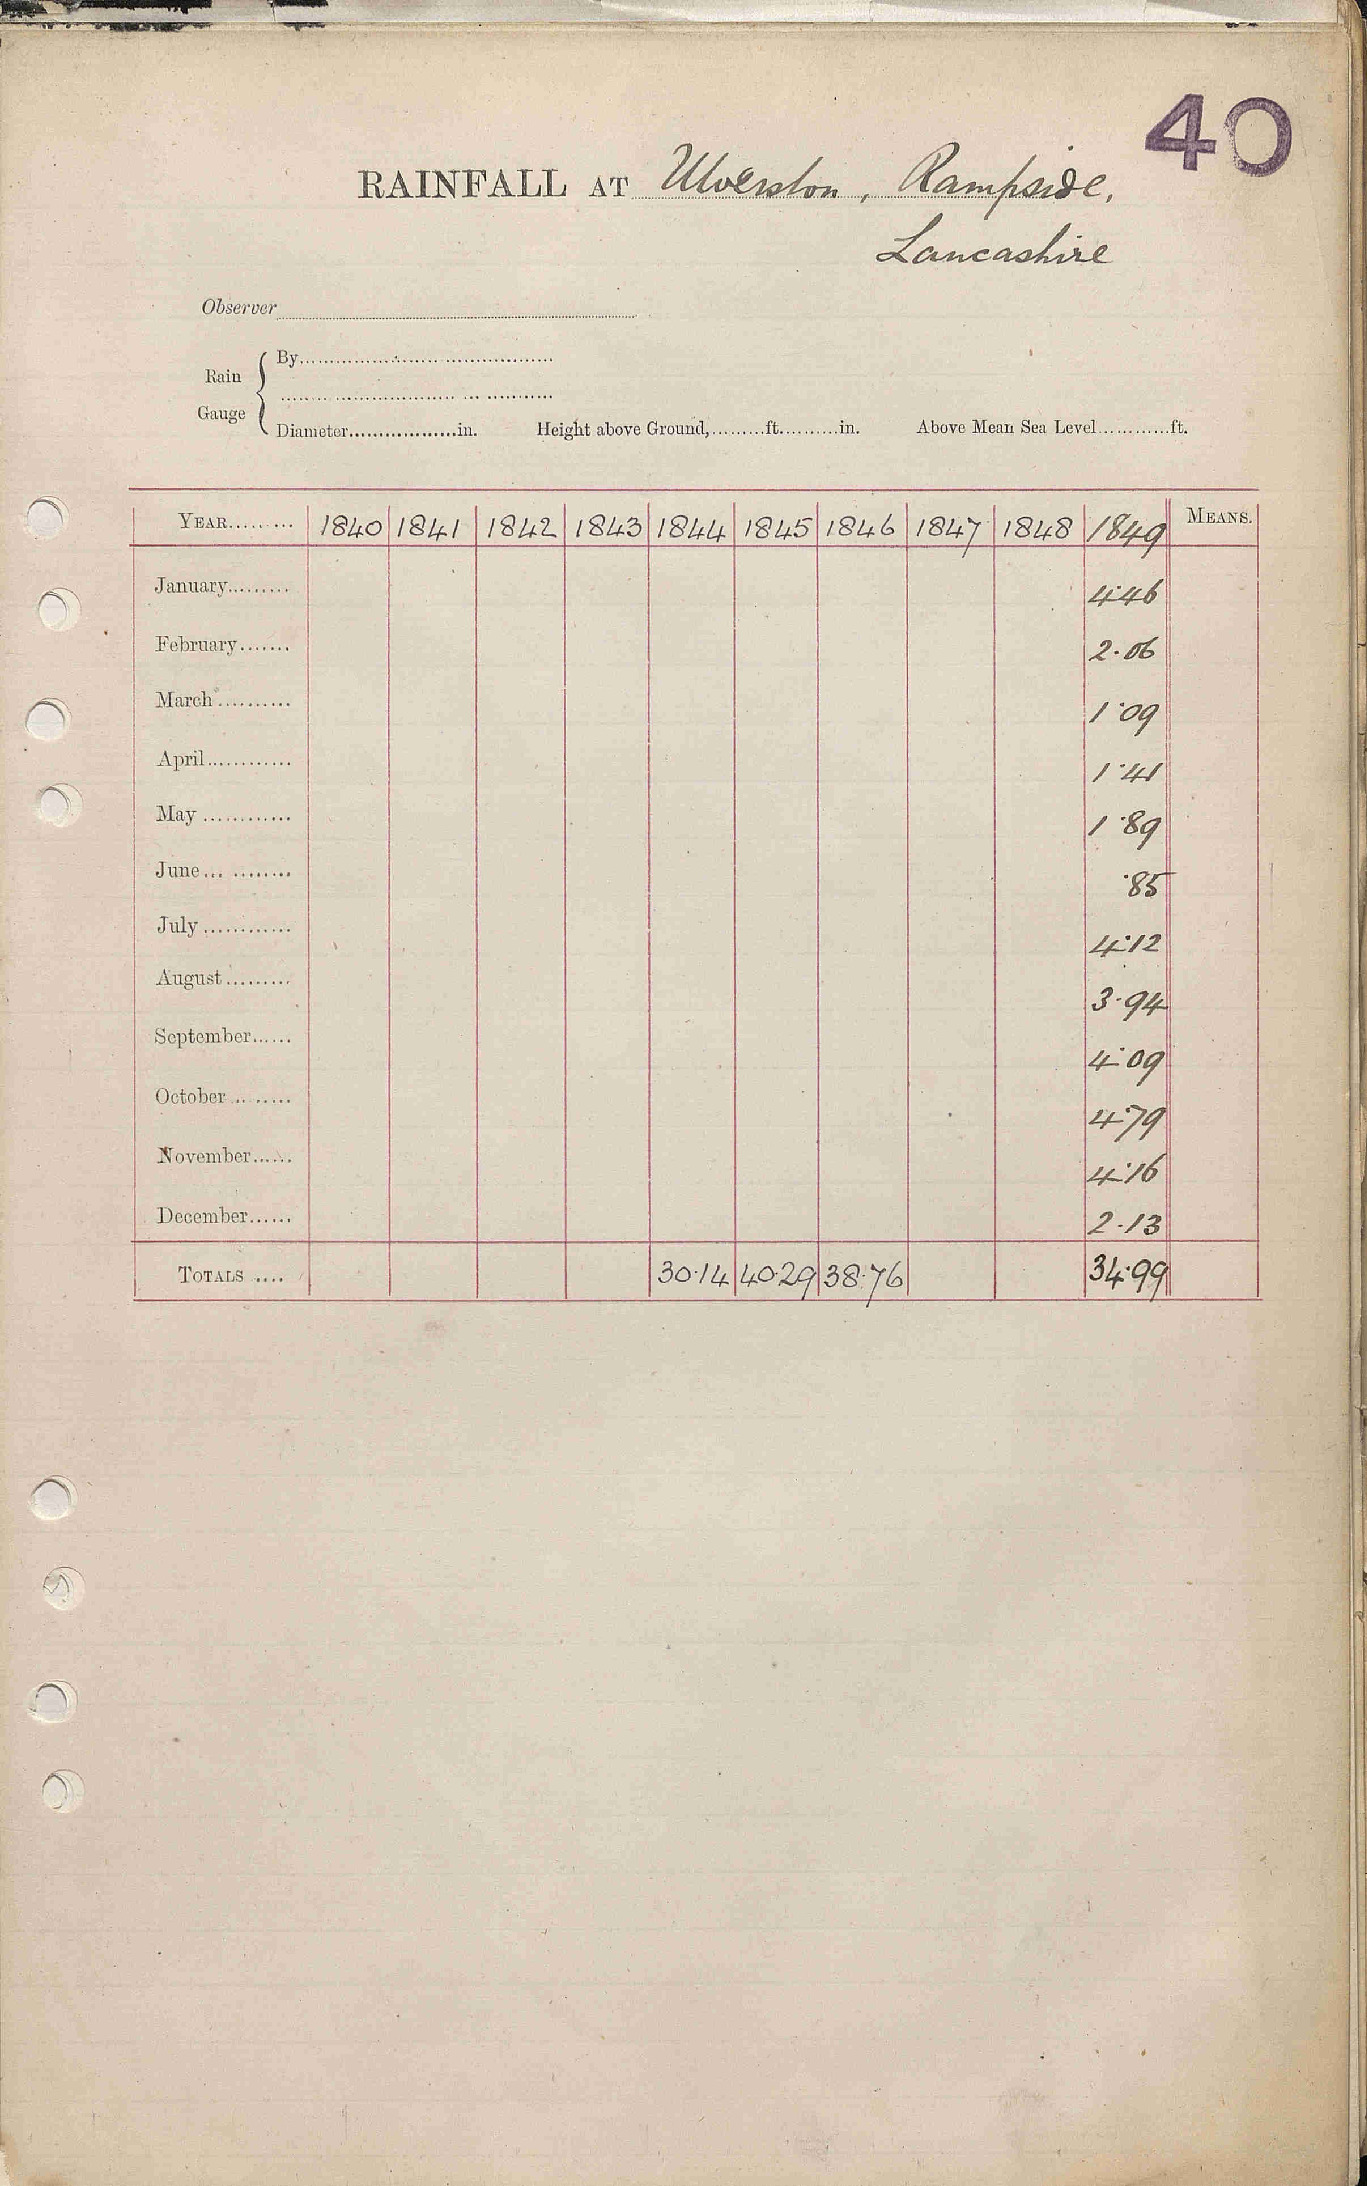 40
RAINFALL AT Ulverston, Rampside,
Lancashire
Observer
Rain Gauge
By
Diameter in. Height above Ground, ft. in. Above Mean Sea Level ft.
YEAR 1840 1841 1842 1843 1844 1845 1846 1847 1848 1849 MEANS.
January 4.46
February 2.06
March 1.09
April 1.41
May 1.89
June .85
July 4.12
August 3.94
September 4.09
October 4.79
November 4.16
December 2.13
TOTALS 30.14 40.29 38.76 34.99